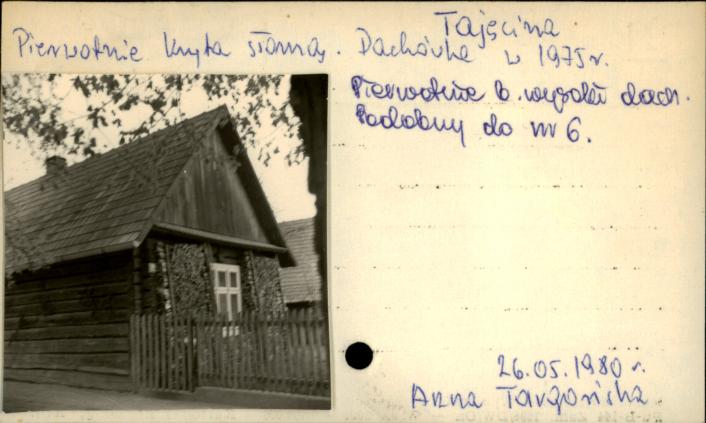 Tajęcina
Pierwotnie kryta słomą. Dachówka w 1975 r.
Pierwotnie b. wysoki dach.
Podobny do nr 6.
26.05.1980 r.
Anna Targońska